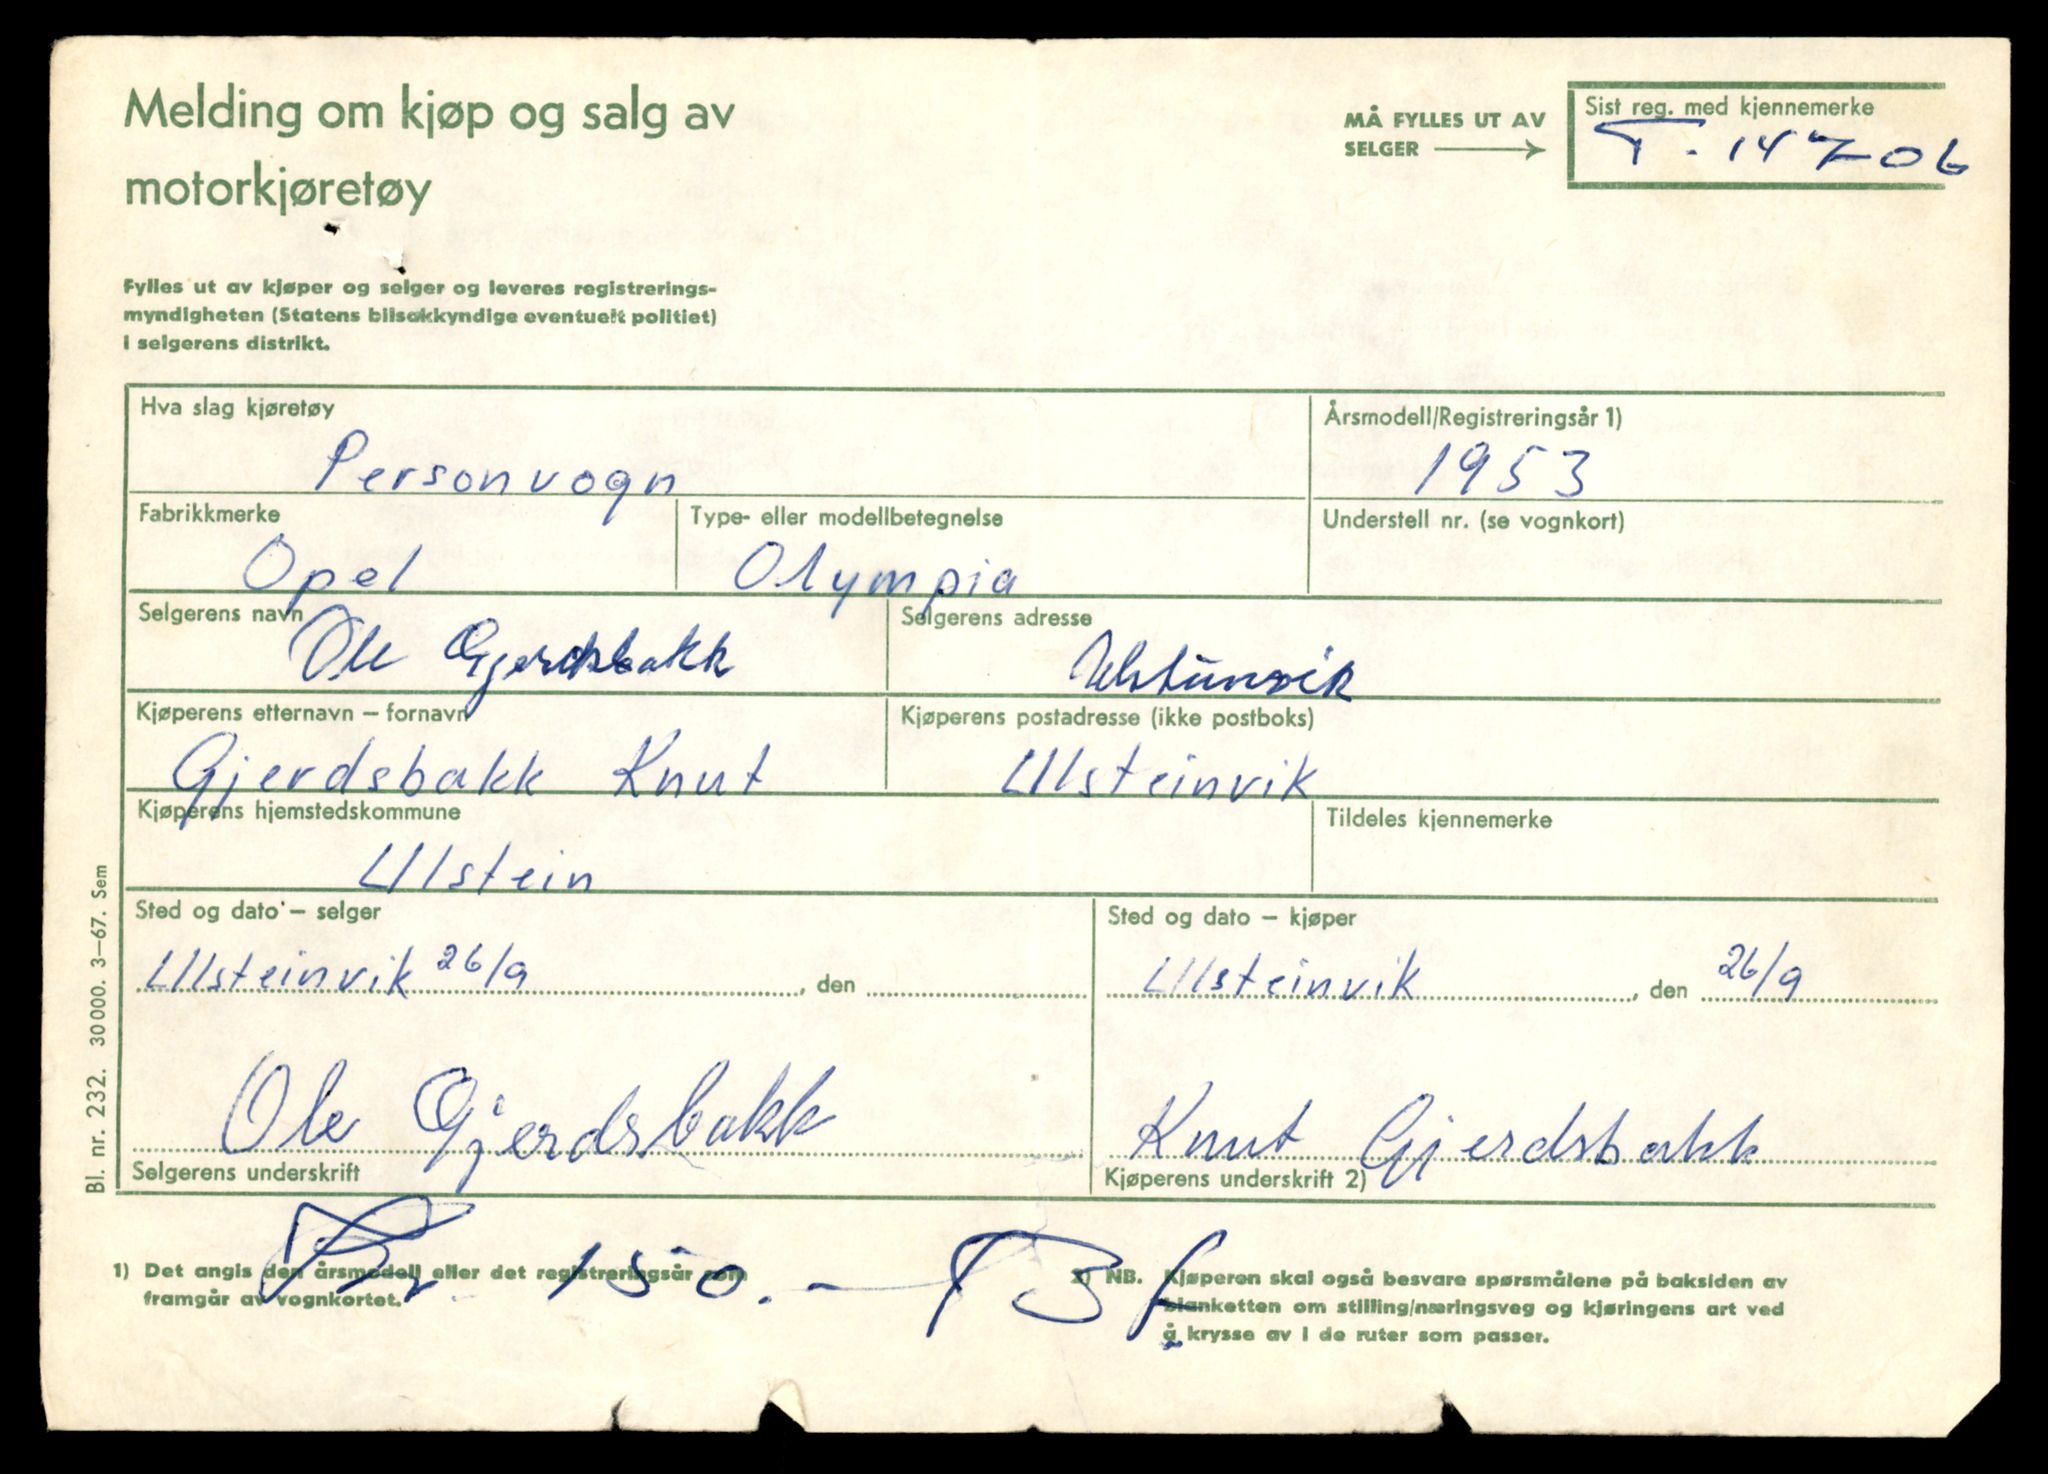 Melding om kjøp og salg av
motorkjøretøy
MÅ FYLLES UT AV
SELGER
Sist reg. med kjennemerke
T. 14706
Fylles ut av kjøper og selger og leveres registrerings-
myndigheten (Statens bilsakkyndige eventuelt politiet)
i selgerens distrikt.
Hva slag kjøretøy
Personvogn
Årsmodell/Registreringsår 1)
1953
Fabrikkmerke
Opel
Type- eller modellbetegnelse
Olympia
Understell nr. (se vognkort)
Selgerens navn
Ole Gjerdsbakk
Selgerens adresse
Kjøperens etternavn – fornavn
Gjerdsbakk Knut
Kjøperens postadresse (ikke postboks)
Ulsteinvik
Kjøperens hjemstedskommune
Ulstein
Tildeles kjennemerke
Sted og dato – selger
Ulsteinvik 26/9, den
Sted og dato – kjøper
Ulsteinvik, den 26/9
Ole Gjerdsbakk
Selgerens underskrift
Knut Gjerdsbakk
Kjøperens underskrift 2)
Kr. 150.-
1) Det angis den årsmodell eller det registreringsår som
framgår av vognkortet.
2) NB. Kjøperen skal også besvare spørsmålene på baksiden av
blanketten om stilling/næringsveg og kjøringens art ved
å krysse av i de ruter som passer.
Bl. nr. 232. 30000. 3–67. Sem